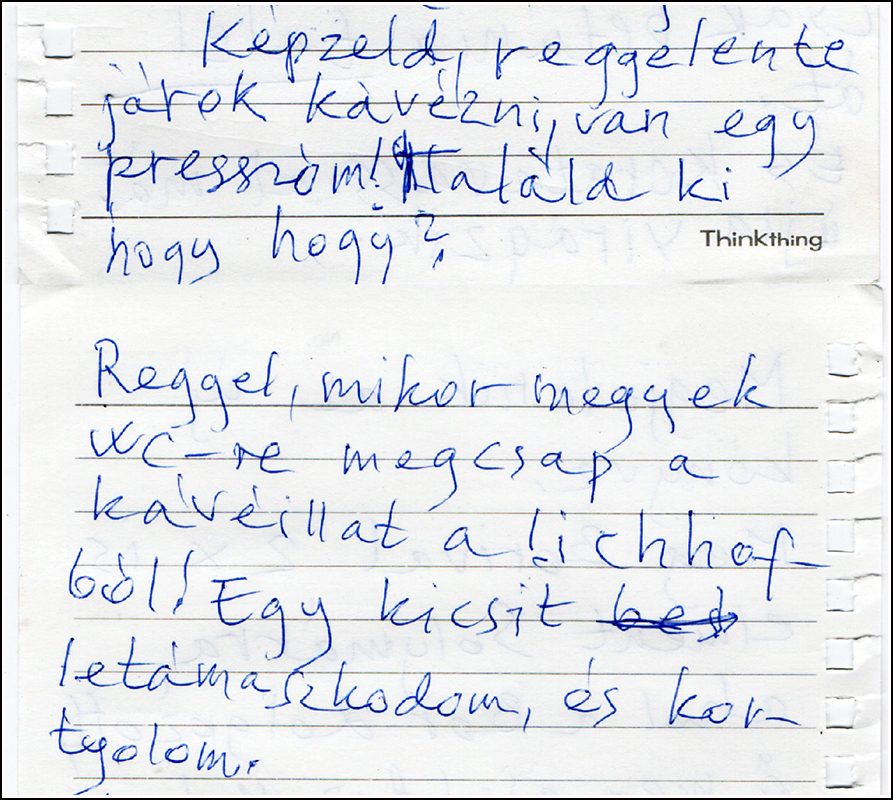 Képzeld, reggelente
járok kávézni, van egy
presszóm! Találd ki
hogy hogy?
Thinkthing
Reggel, mikor megyek
WC-re megcsap a
kávéillat a lichhof-
ból! Egy kicsit bes
letámaszkodom, és kor-
tyolom.